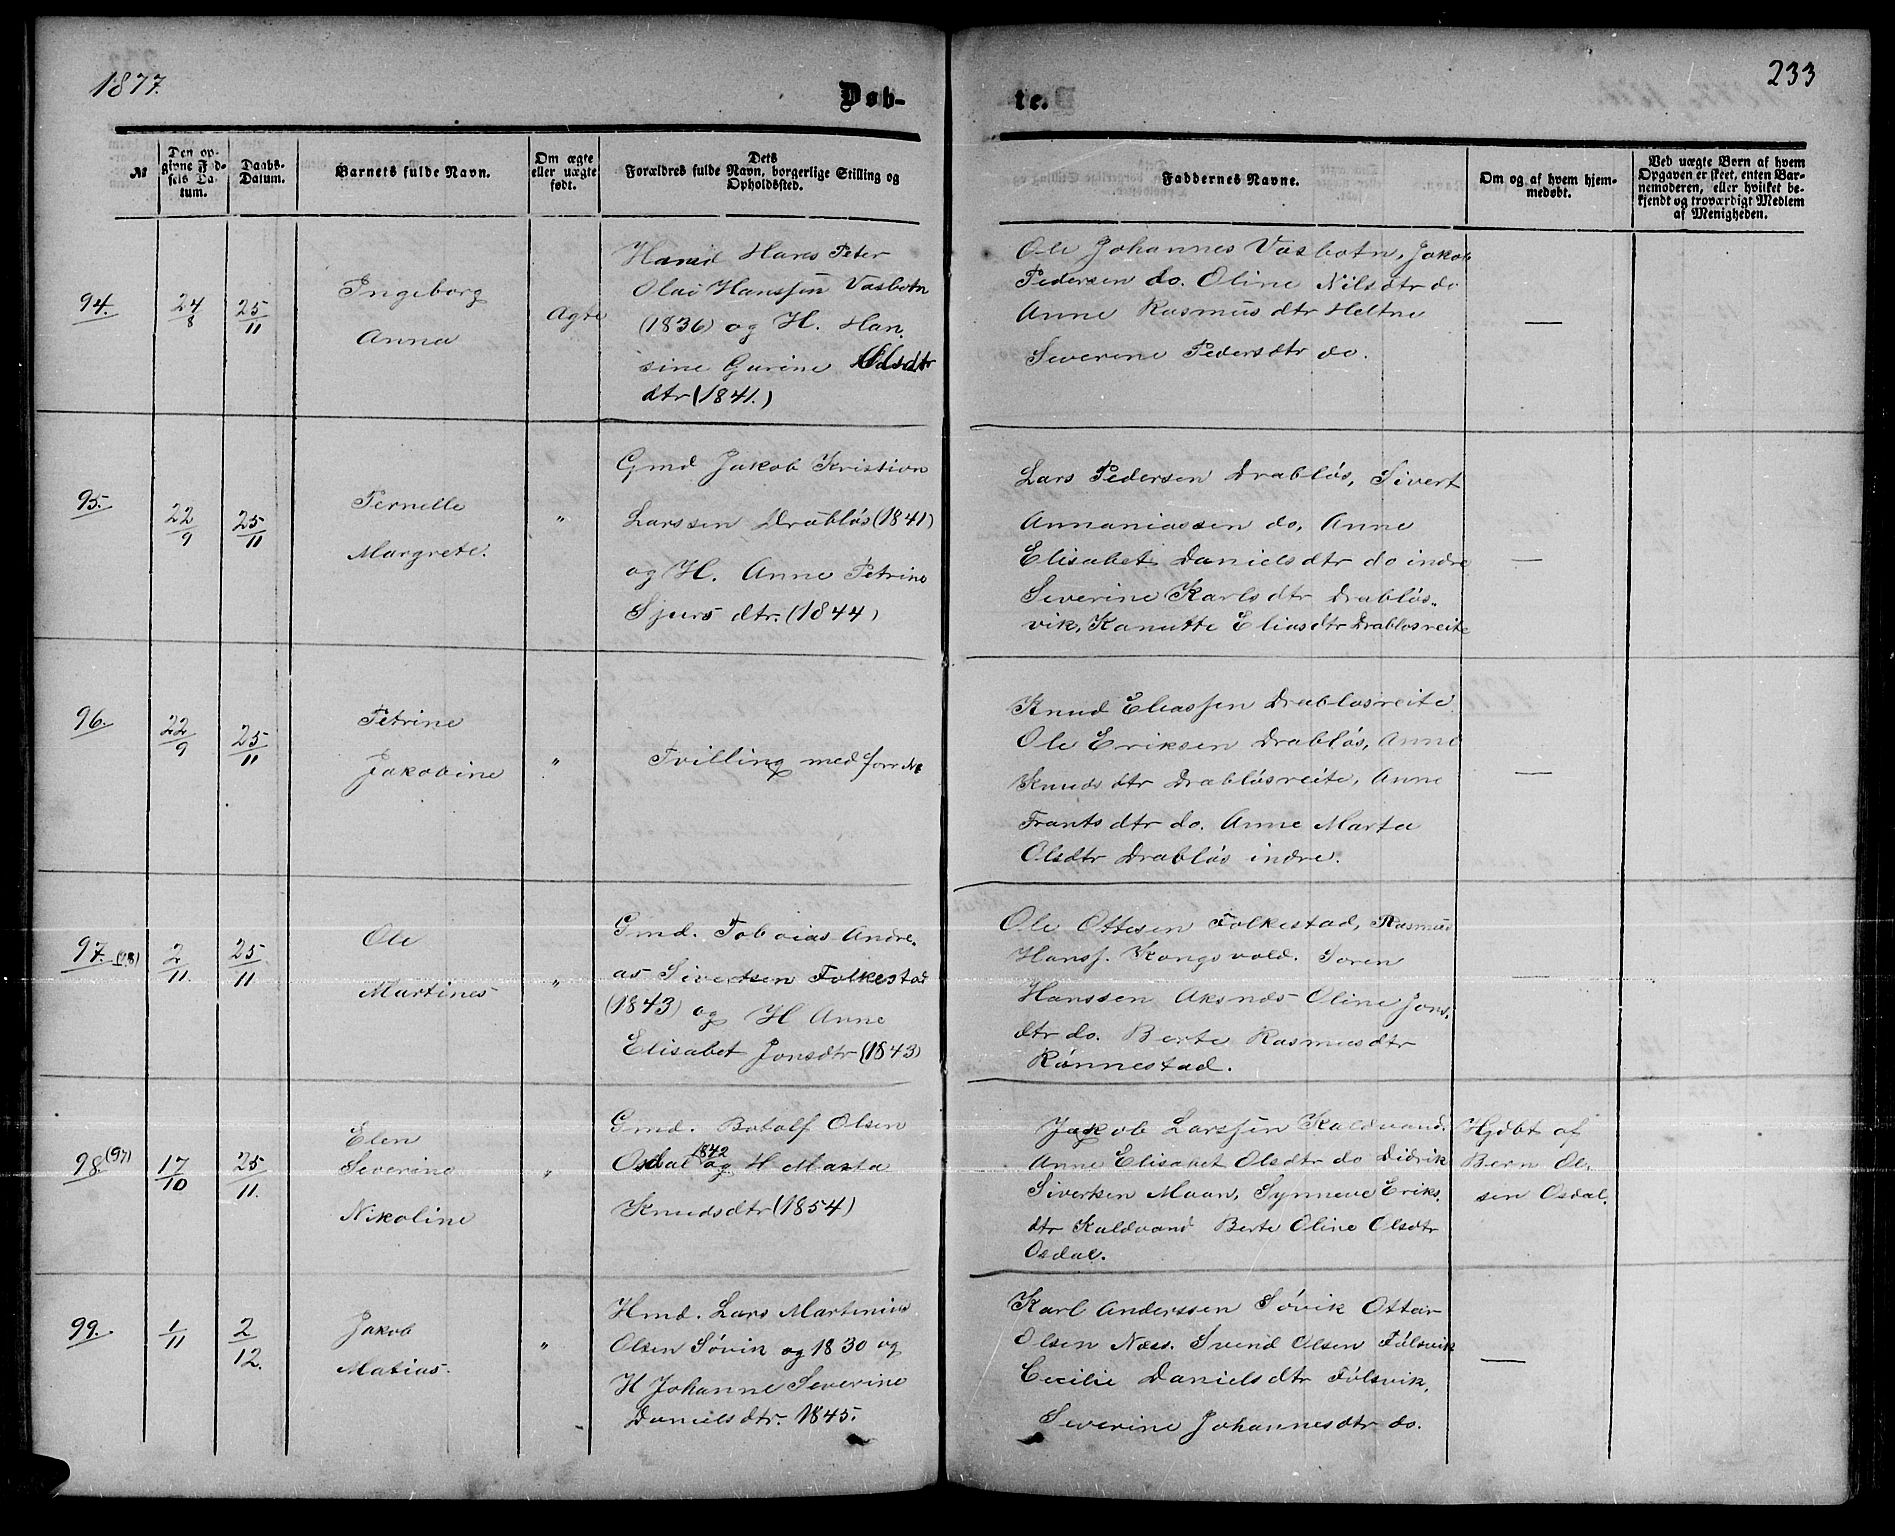 1877.
Døb-
te.
233
№
Den op-
givne Fød-
sels Da-
tum.
Daabs-
Datum.
Barnets fulde Navn.
Om ægte
eller uægte
født.
Dets
Forældres fulde Navn, borgerlige Stilling og
Opholdssted.
Faddernes Navne.
Om og af hvem hjem-
medøbt.
Ved uægte Børn af hvem
Opgaven er skeet, enten Bar-
nemoderen, eller hvilket be-
kjendt og troværdigt Medlem
af Menigheden.
94.
24/8
25/11
Ingeborg
Anna
Ægte
Hans Peter
Olai Hanssen Vasbotn
(1836) og H. Han-
sine Gurine Olsdtr
dtr (1841.)
Ole Johannes Vasbotn, Jakob
Pedersen do. Oline Nilsdtr do
Anne Rasmusdtr Heltne
Severine Pedersdtr do.
—
95.
22/9
25/11
Pernelle
Margrete.
"
Gmd Jakob Kristian
Larssen Drabløs (1841)
og H. Anne Petrine
Sjursdtr. (1844)
Lars Pedersen Drabløs, Sivert
Annaniassen do, Anne
Elisabet Danielsdtr do indre
Severine Karlsdtr Drabløs-
vik, Kanutte Eliasdtr Drabløsreite
—
96.
22/9
25/11
Petrine
Jakobine
"
Tvilling med forr №
Knud Eliassen Drabløsreite
Ole Eriksen Drabløs, Anne
Knudsdtr Drabløsreite, Anne
Frantsdtr do. Anne Marta
Olsdtr Drabløs indre.
—
97. (98)
2/11.
25/11
Ole
Martines
"
Gmd. Tobias Andre-
as Sivertsen Folkestad
(1843) og H Anne
Elisabet Jonsdtr (1843)
Ole Ottesen Folkestad, Rasmus
Hanss. Kongsvold. Soren
Hanssen Aksnes Oline Jons-
dtr do. Berte Rasmusdtr
Rønnestad.
—
98. (97)
17/10
25/11.
Elen
Severine
Nikoline
"
Gmd. Botolf Olsen
Osdal 1842 og H Marta
Knudsdtr (1854)
Jakob Larssen Kaldvand.
Anne Elisabet Olsdtr do Didrik
Sivertsen Moan, Synneve Eriks-
dtr Kaldvand Berte Oline Olsdtr
Osdal.
Hjdbt af
Bern Ol-
sen Osdal.
99.
1/11
2/12.
Jakob
Matias.
"
Hmd. Lars Martinius
Olsen Søvik og 1830 og
H Johanne Severine
Danielsdtr. 1845.
Karl Anderssen Søvik Ottar
Olsen Næss. Svend Olsen Følsvik
Cecilie Danielsdtr Følsvik,
Severine Johannesdtr do.
—